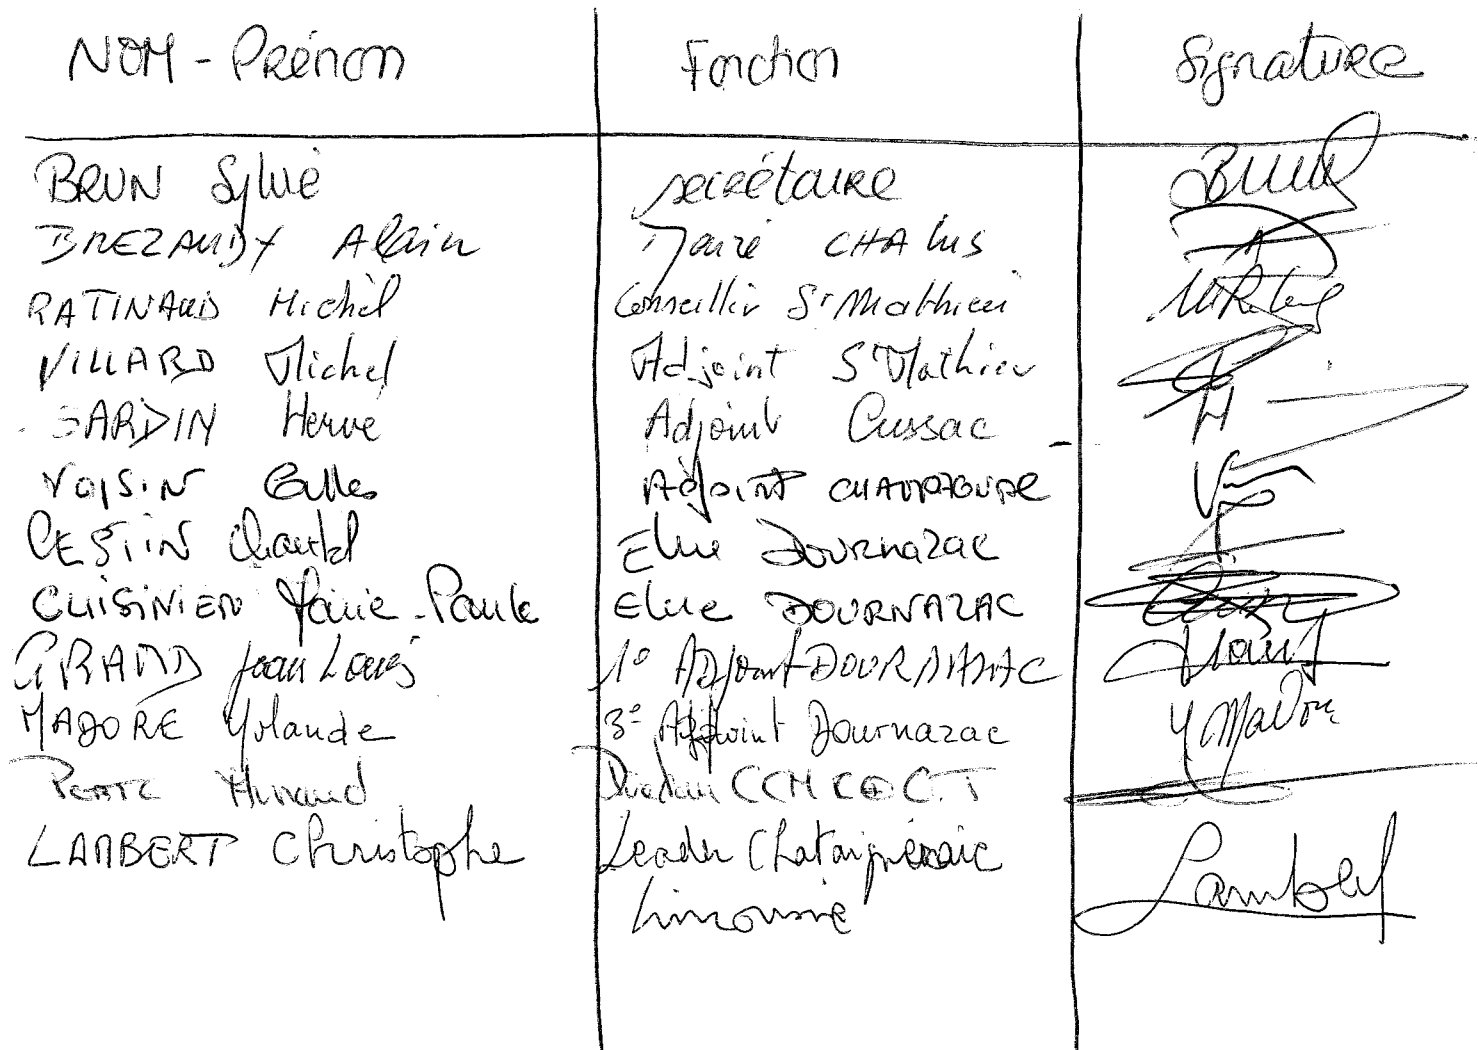 NOM - Prénom Fonction Signature
BRUN Sylvie secrétaire
BREZAUDY Alain Maire CHALUS
RATINAUD Michel Conseiller St Mathieu
VILLARD Michel Adjoint St Mathieu
SARDIN Hervé Adjoint Cussac
VOISIN Gilles Adjoint
CESTIN Chantal Elue DOURNAZAC
CUISINIER Marie-Paule Elue DOURNAZAC
GRAND Jean Louis 1° Adjoint DOURNAZAC
MADORE Yolande 3e Adjoint Dournazac Y Madore
LAMBERT Christophe Leader Chataigneraie Lambert
Limousine